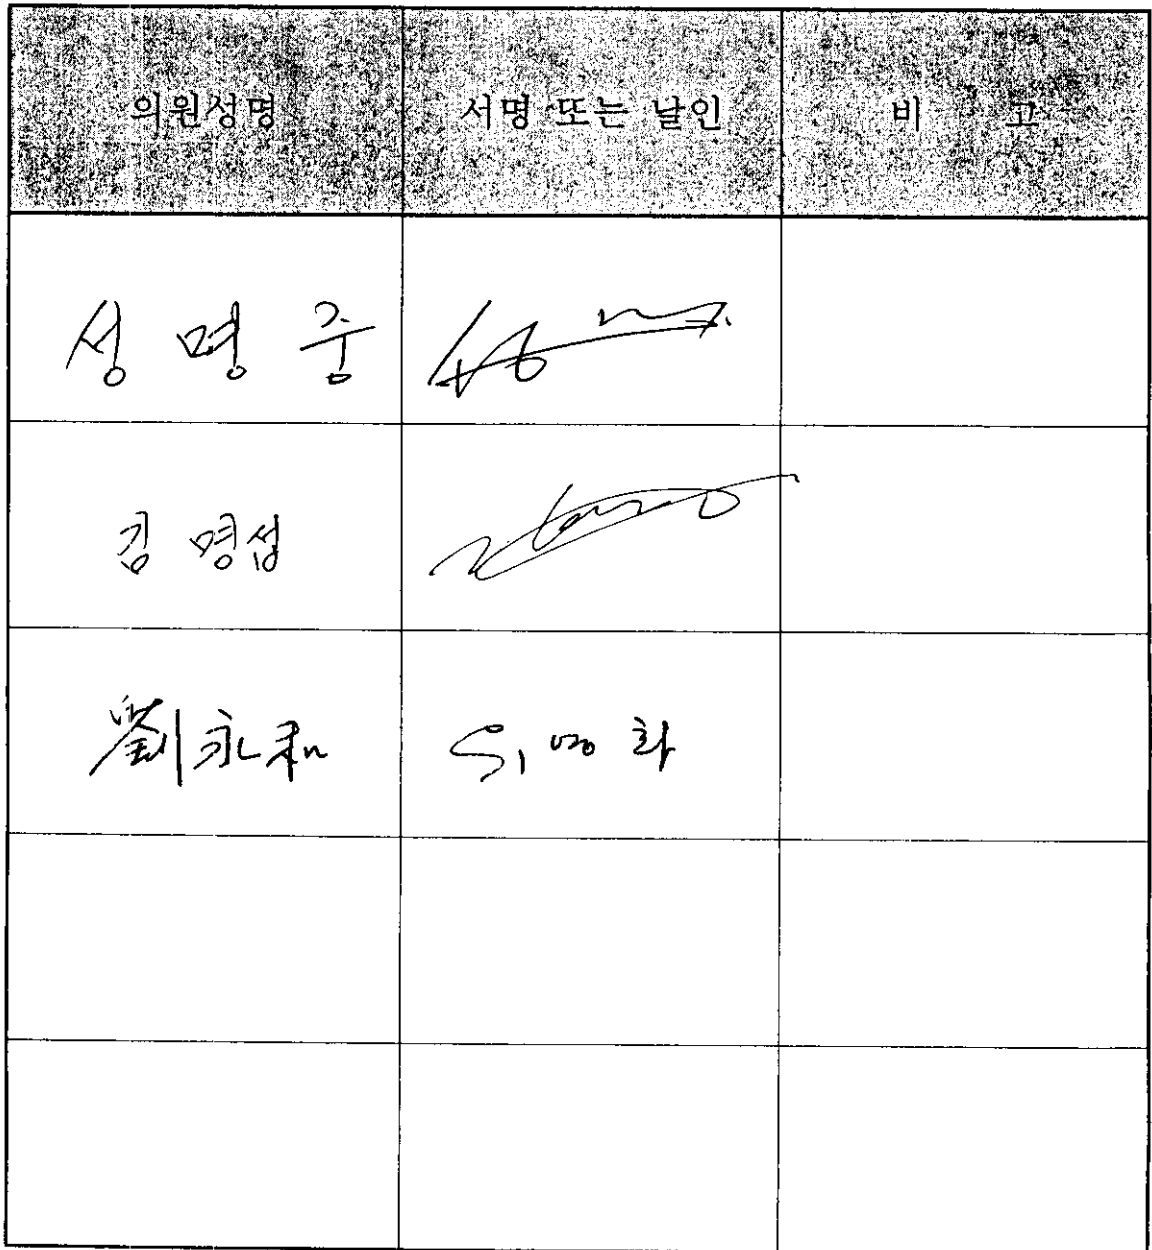 의원성명 서명 또는 날인 비 고
성 명 중
김 명섭
劉永和 유영화